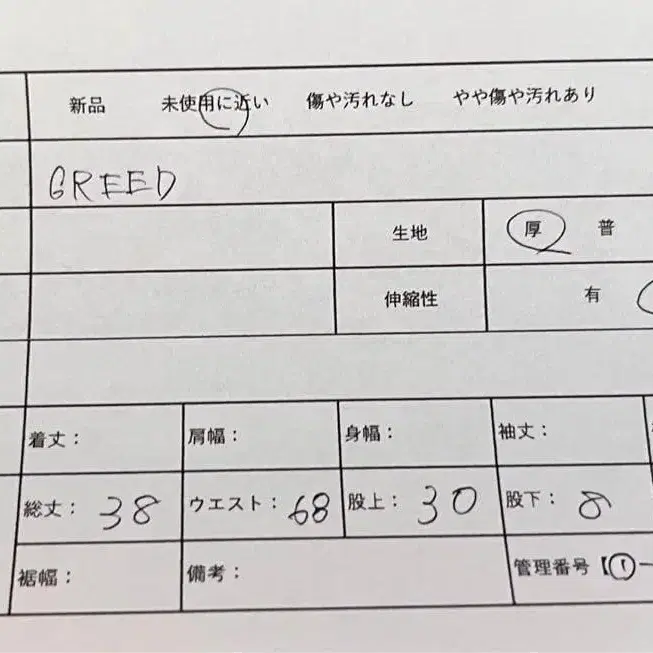 新品 未使用に近い 傷や汚れなし やや傷や汚れあり
GREED
生地 厚 普
伸縮性 有
着丈： 肩幅： 身幅： 袖丈：
総丈： 38 ウエスト： 68 股上： 30 股下： 8
裾幅： 備考： 管理番号【①ー